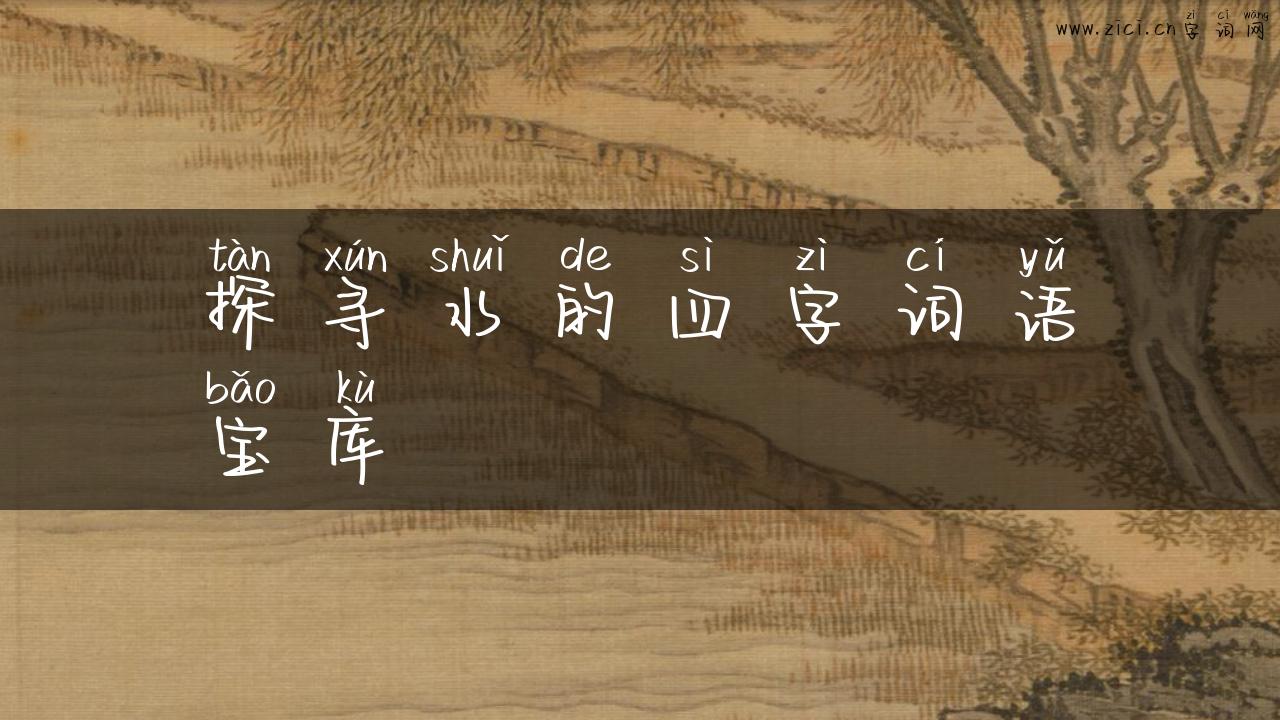 zì cí wǎng
www.zici.cn字词网
tàn xún shuǐ de sì zì cí yǔ
探寻水的四字词语
bǎo kù
宝库